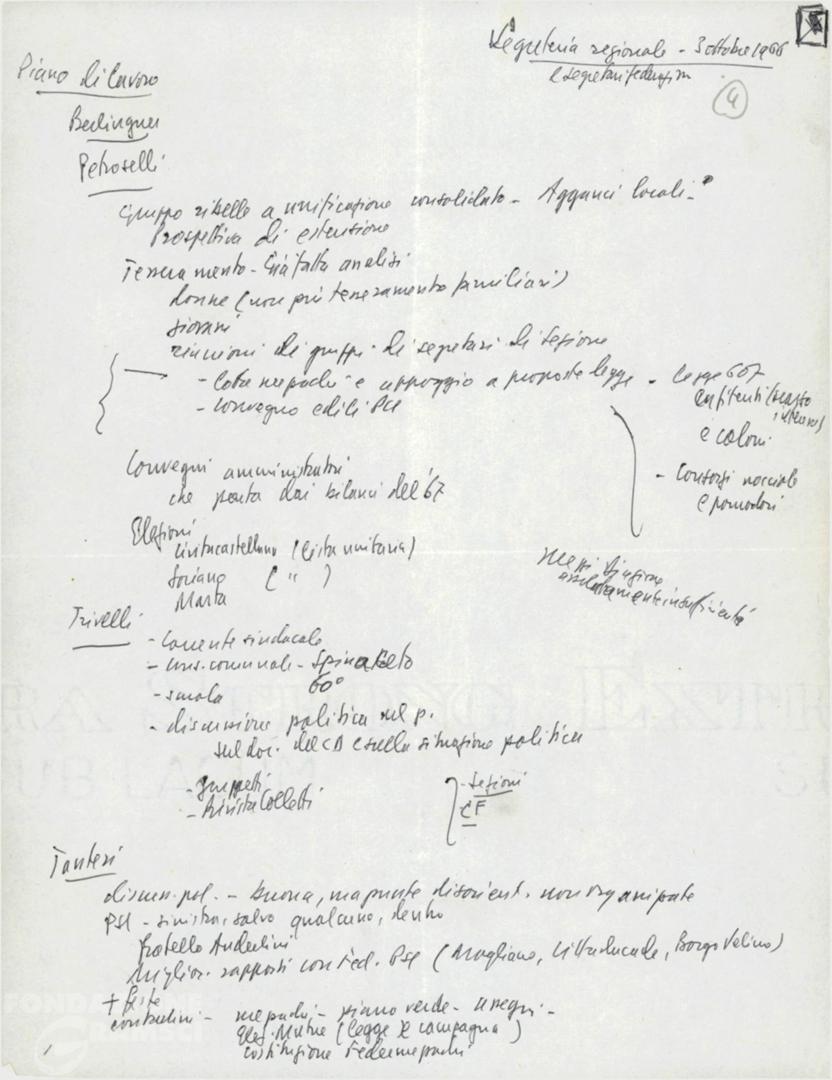 Segreteria regionale - 3 ottobre 1966
e segretari federazioni
4
Piano di lavoro
Berlinguer
Petroselli
Gruppo ribelle a unificazione consolidato - Agganci locali -
Prospettiva di estensione
Tesseramento - Già fatta analisi
donne (non più tesseramento familiari)
giovani
riunioni di gruppi di segretari di sezione
- lotta mezzadri e appoggio a proposte legge - legge 607
enfiteuti (
e coloni
- convegno edili PCI
- Consorzi nocciole
e pomodori
Convegni amministratori
che parta dai bilanci del '67
Elezioni
Civitacastellana (lista unitaria)
Soriano ( " )
Marta
mezzi
assolutamente insufficienti
Trivelli
- Corrente sindacale
- cons. comunale - Spinaceto
60°
- scuola
- discussione politica nel p.
sul doc. del CD e sulla situazione politica
- gruppetti
- Rivista Colletti
- Sezioni
CF
discuss. pol. - buona, ma punte disorient. non organizzate
PSI - sinistra, salvo qualcuno, dentro
fratello Anderlini
Miglior. rapporti con Fed. PSI (Magliano, Cittaducale, Borgo Velino)
+ feste
contadini - mezzadri - piano verde -
Elez. Mutue (legge e campagna)
costituzione Federmezzadri
FONDAZIONE
GRAMSCI